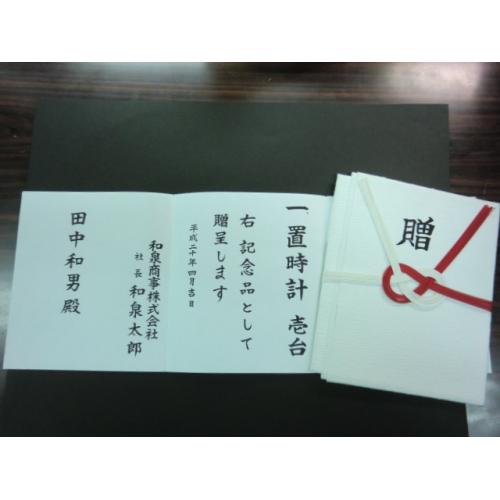 贈
一、置時計 壱台
右 記念品として
贈呈します
平成二十年 四月吉日
和泉商事株式会社
社長 和泉太郎
田中和男殿